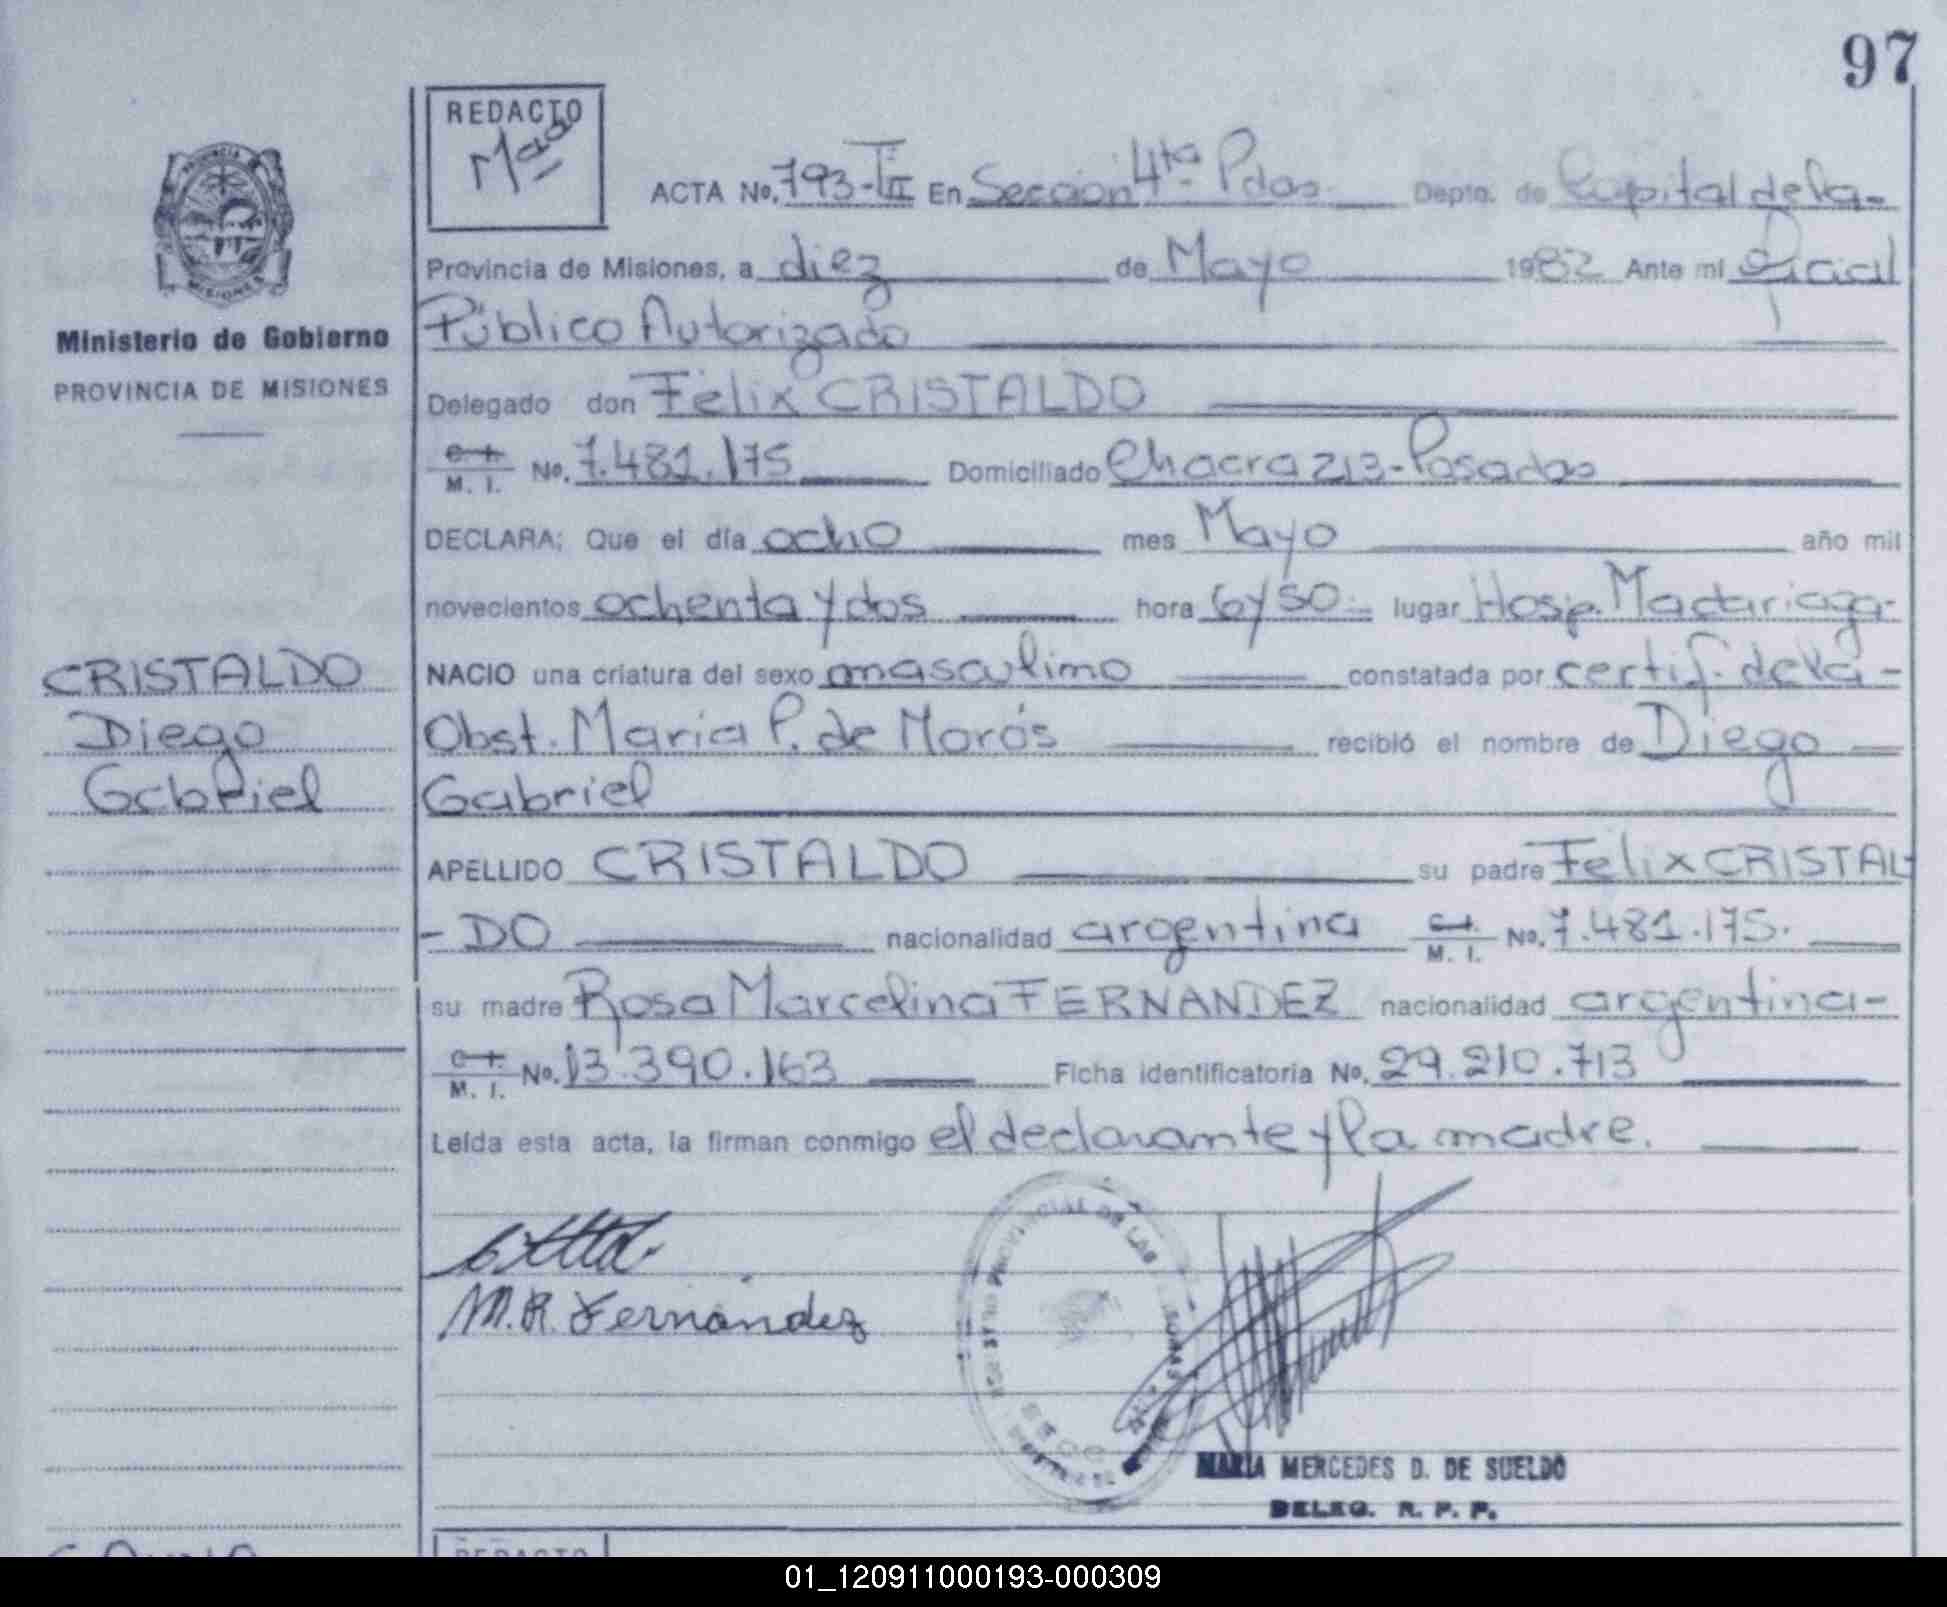 97
REDACTO
Mcia
ACTA No. 793-TII En Sección 4ta Pdas. Depto. de Capital de la-
Provincia de Misiones, a diez de Mayo 1982 Ante mi Oficial
Público Autorizado
Delegado don Félix CRISTALDO
C. I.
M. I. No. 7.481.175 Domiciliado Chacra 213-Posadas
DECLARA: Que el día ocho mes Mayo año mil
novecientos ochenta y dos hora 6y50 lugar Hosp. Madariaga-
NACIO una criatura del sexo masculino constatada por certif. de la-
Obst. María P. de Morós recibió el nombre de Diego
Gabriel
APELLIDO CRISTALDO su padre Felix CRISTAL-
-DO nacionalidad argentina C. I. M. I. No. 7.481.175.
su madre Rosa Marcelina FERNANDEZ nacionalidad argentina-
C. I.
M. I. No. 13.390.163 Ficha identificatoria No. 29.210.713
Leída esta acta, la firman conmigo el declarante y la madre.
M.R. Fernández
PROVINCIAL DE LAS
MARIA MERCEDES D. DE SUELDO
DELEG. R. P. P.
REDACTO
PROVINCIA
MISIONES
Ministerio de Gobierno
PROVINCIA DE MISIONES
CRISTALDO
Diego
Gabriel
01_120911000193-000309